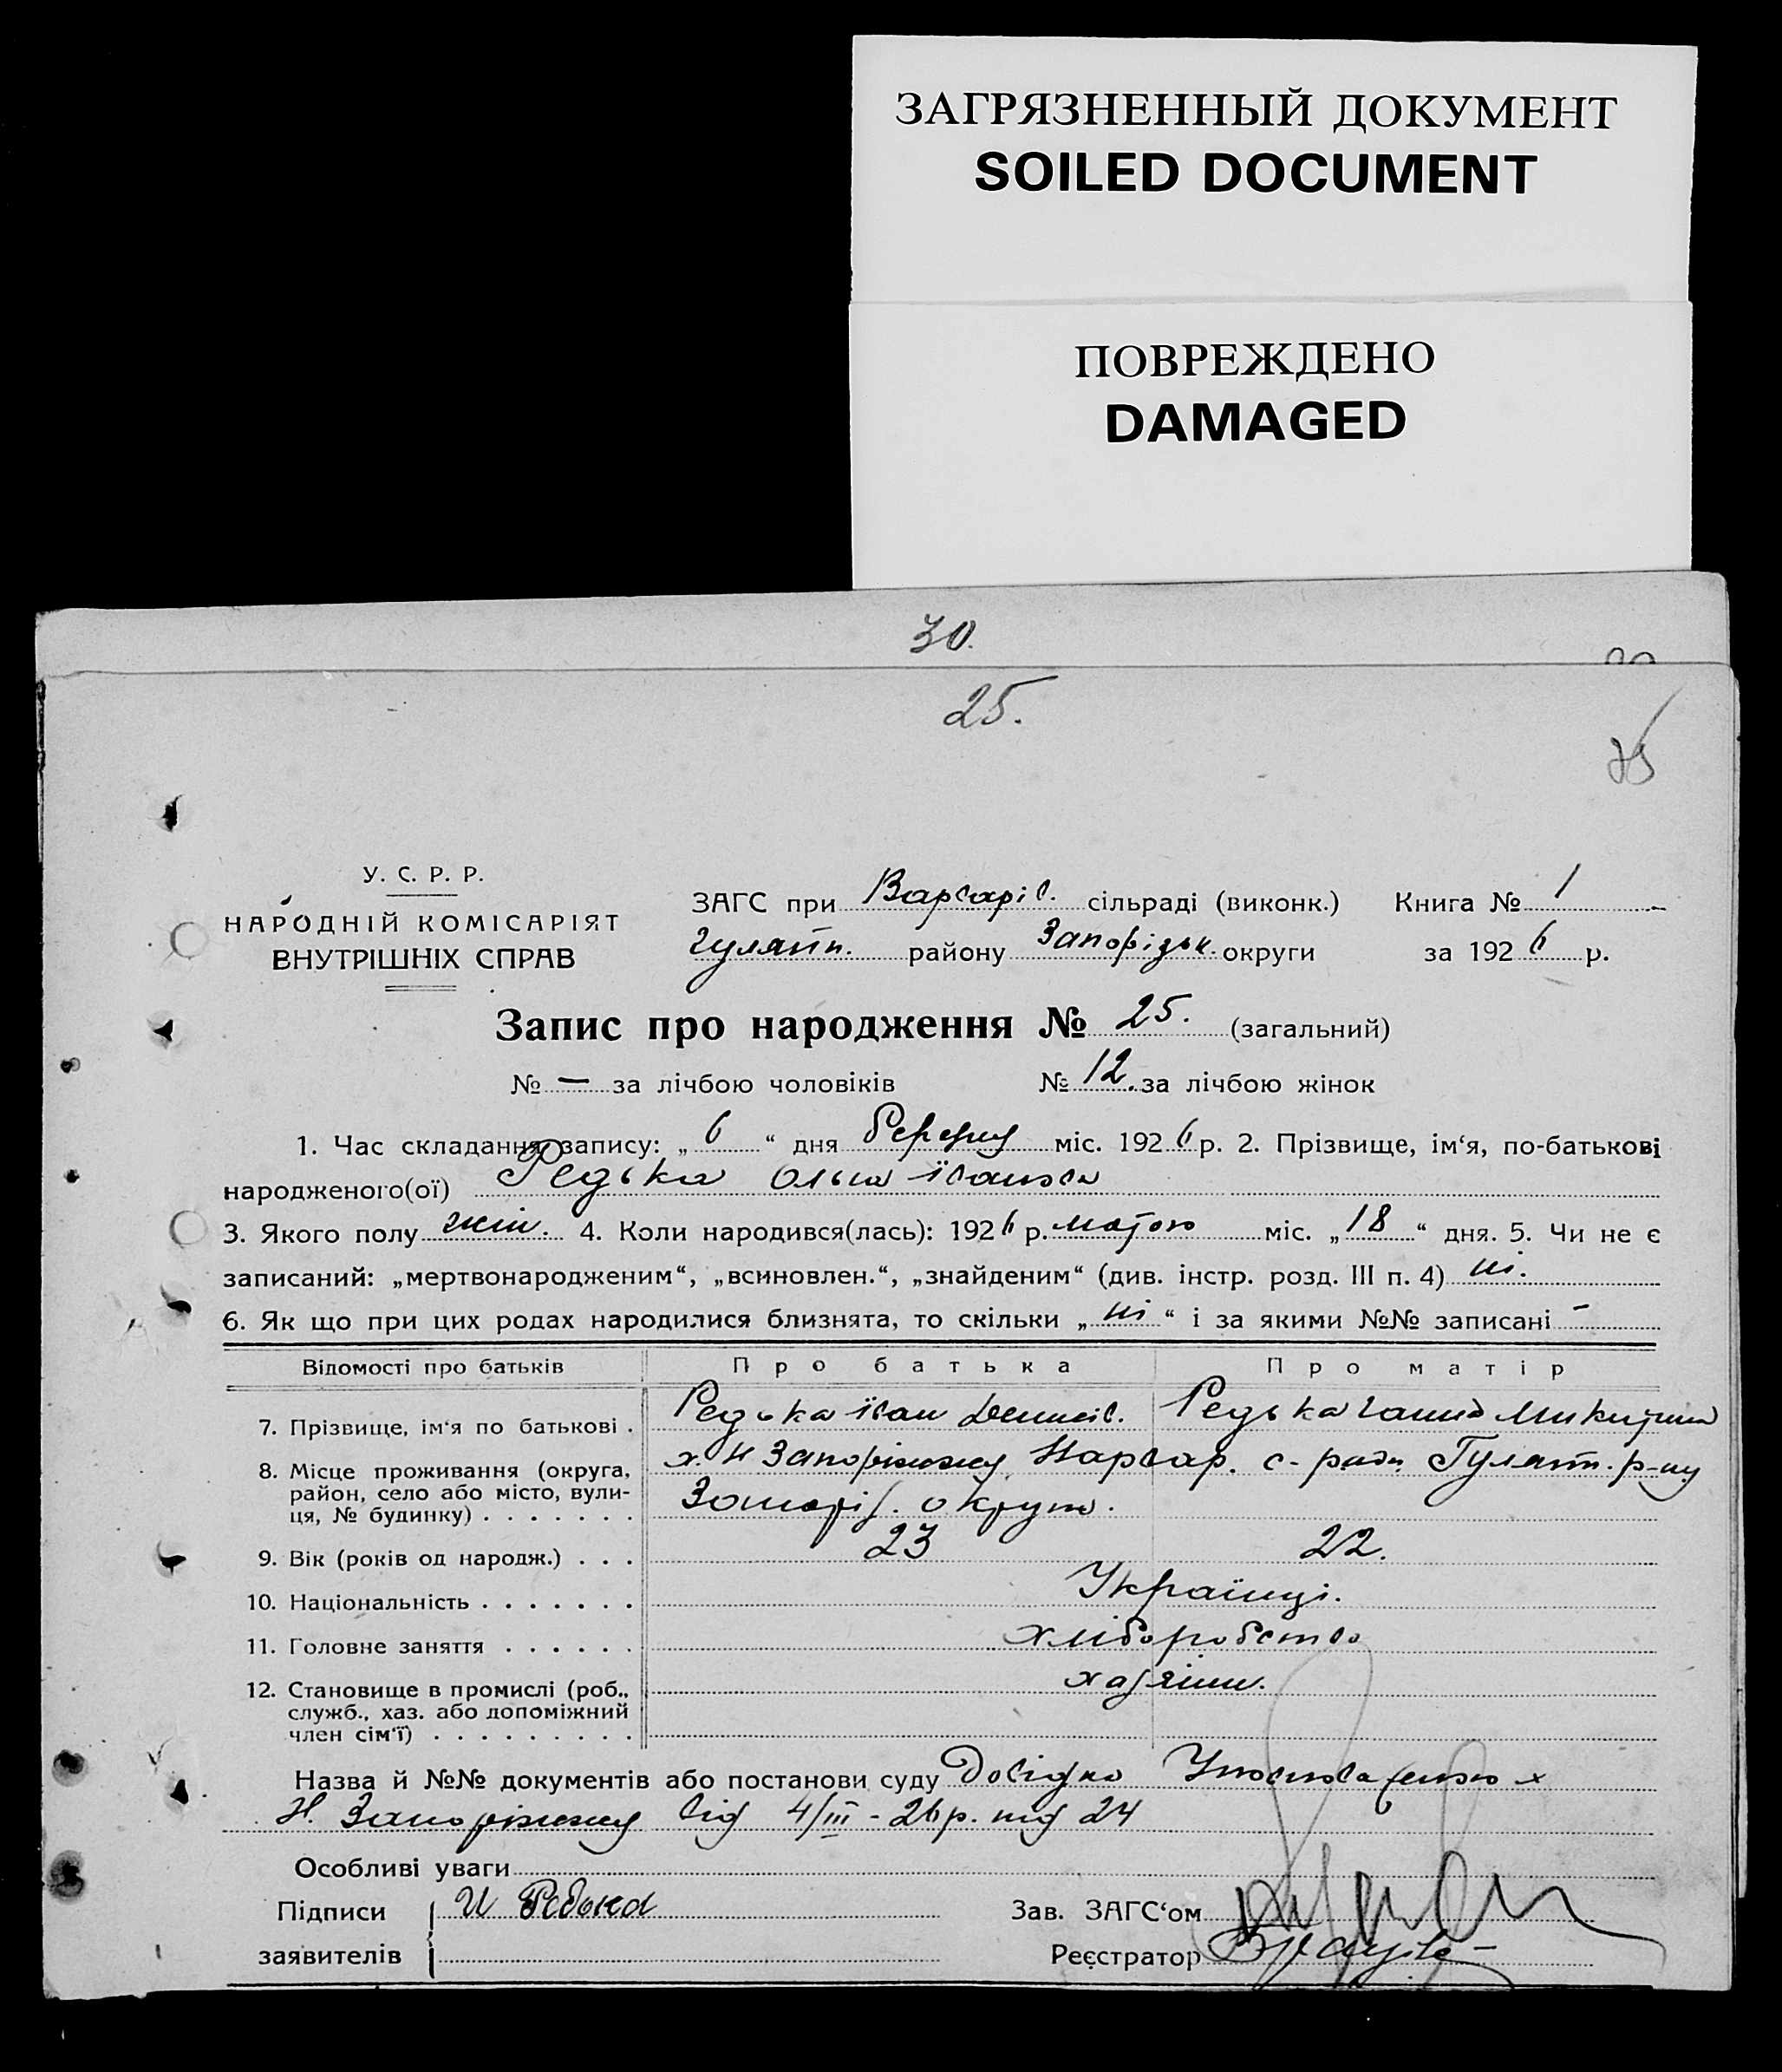 ЗАГРЯЗНЕННЫЙ ДОКУМЕНТ
SOILED DOCUMENT
ПОВРЕЖДЕНО
DAMAGED
30.
25.
25
У. С. Р. Р.
НАРОДНІЙ КОМІСАРІЯТ
ВНУТРІШНІХ СПРАВ
ЗАГС при Варварів. сільраді (виконк.) Книга № 1
Гуляйп. району Запорізьк. округи за 1926 р.
Запис про народження № 25. (загальний)
№ — за лічбою чоловіків № 12. за лічбою жінок
1. Час складання запису: „ 6 “ дня березня міс. 1926 р. 2. Прізвище, ім‘я, по-батькові
народженого(ої) Редька Ольга Іванова
3. Якого полу жін. 4. Коли народився(лась): 1926 р. лютого міс. „ 18 “ дня. 5. Чи не є
записаний: „мертвонародженим“, „всиновлен.“, „знайденим“ (див. інстр. розд. III п. 4) ні.
6. Як що при цих родах народилися близнята, то скільки „ ні “ і за якими №№ записані –
Відомості про батьків Про батька Про матір
7. Прізвище, ім‘я по батькові . Редька Іван Редька Ганна Микитина
8. Місце проживання (округа, район, село або місто, вулиця, № будинку) х. Н Запоріжжя Варвар. с-ради Гуляйп. р-ну
Запоріз. округи.
9. Вік (років од народж.) . . . 23 22.
10. Національність . . . . . . . Українці.
11. Головне заняття . . . . . . хліборобство
12. Становище в промислі (роб., служб., хаз. або допоміжний член сім‘ї) . . . . . . . . . хазяїни.
Назва й №№ документів або постанови суду Довідка Уповноваженого х
Н. Запоріжжя від 4/III - 26 р. під 24
Особливі уваги
Підписи И Редька Зав. ЗАГС‘ом
заявителів Реєстратор